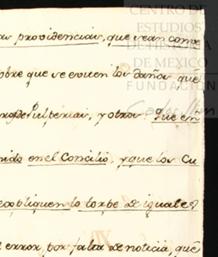 as providencias, que sean conve
obre que se eviten los daños que
Pulperias, y otros que en
nido en el Concilio, y que los Cu
expliquen lo torpe de iguales
l error, por falta de noticia, que
CENTRO DE
ESTUDIOS
DE HISTORIA
DE MEXICO
FUNDACIÓN